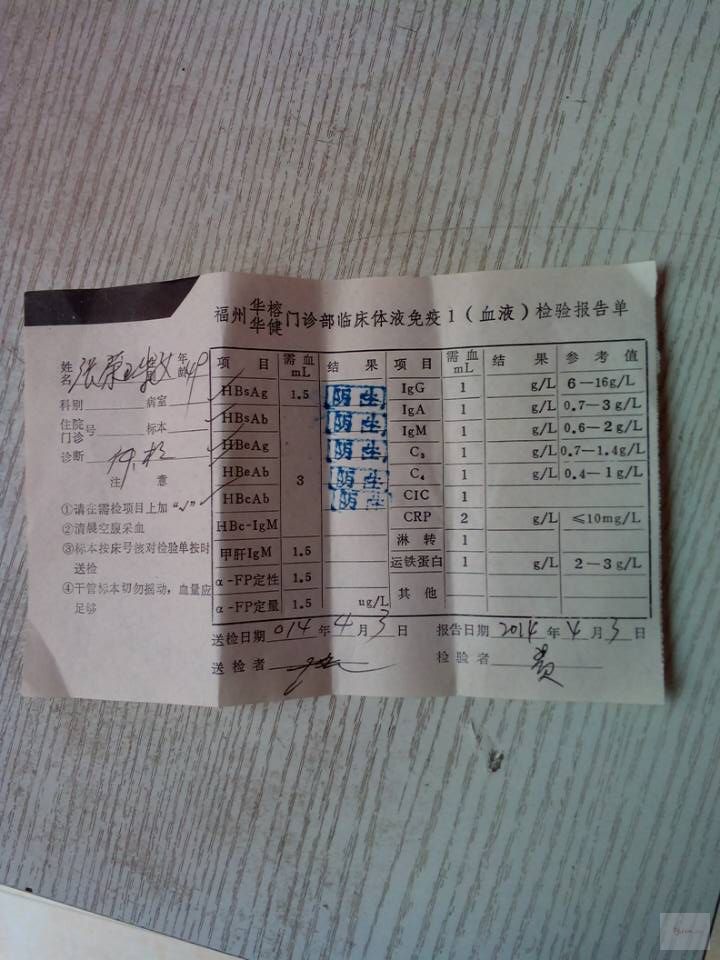 福州华榕华健门诊部临床体液免疫1(血液)检验报告单
姓名 年龄
科别 病室
住院门诊号 标本
诊断
注意
①请在需检项目上加“√”
②清晨空腹采血
③标本按床号核对检验单按时
送检
④干管标本切勿摇动,血量应
足够
项目 需血mL 结果 项目 需血mL 结果 参考值
HBsAg 1.5 阴性 IgG 1 g/L 6—16g/L
HBsAb 阴性 IgA 1 g/L 0.7—3g/L
HBeAg 阴性 IgM 1 g/L 0.6—2g/L
HBeAb 3 阴性 C₃ 1 g/L 0.7—1.4g/L
HBcAb 阴性 C₄ 1 g/L 0.4—1g/L
HBc-IgM CIC 1
甲肝IgM 1.5 CRP 2 g/L ≤10mg/L
α-FP定性 1.5 淋转 1
α-FP定量 1.5 ug/L 运铁蛋白 1 g/L 2—3g/L
其他
送检日期 014年4月3日 报告日期 2014年4月3日
送检者 检验者